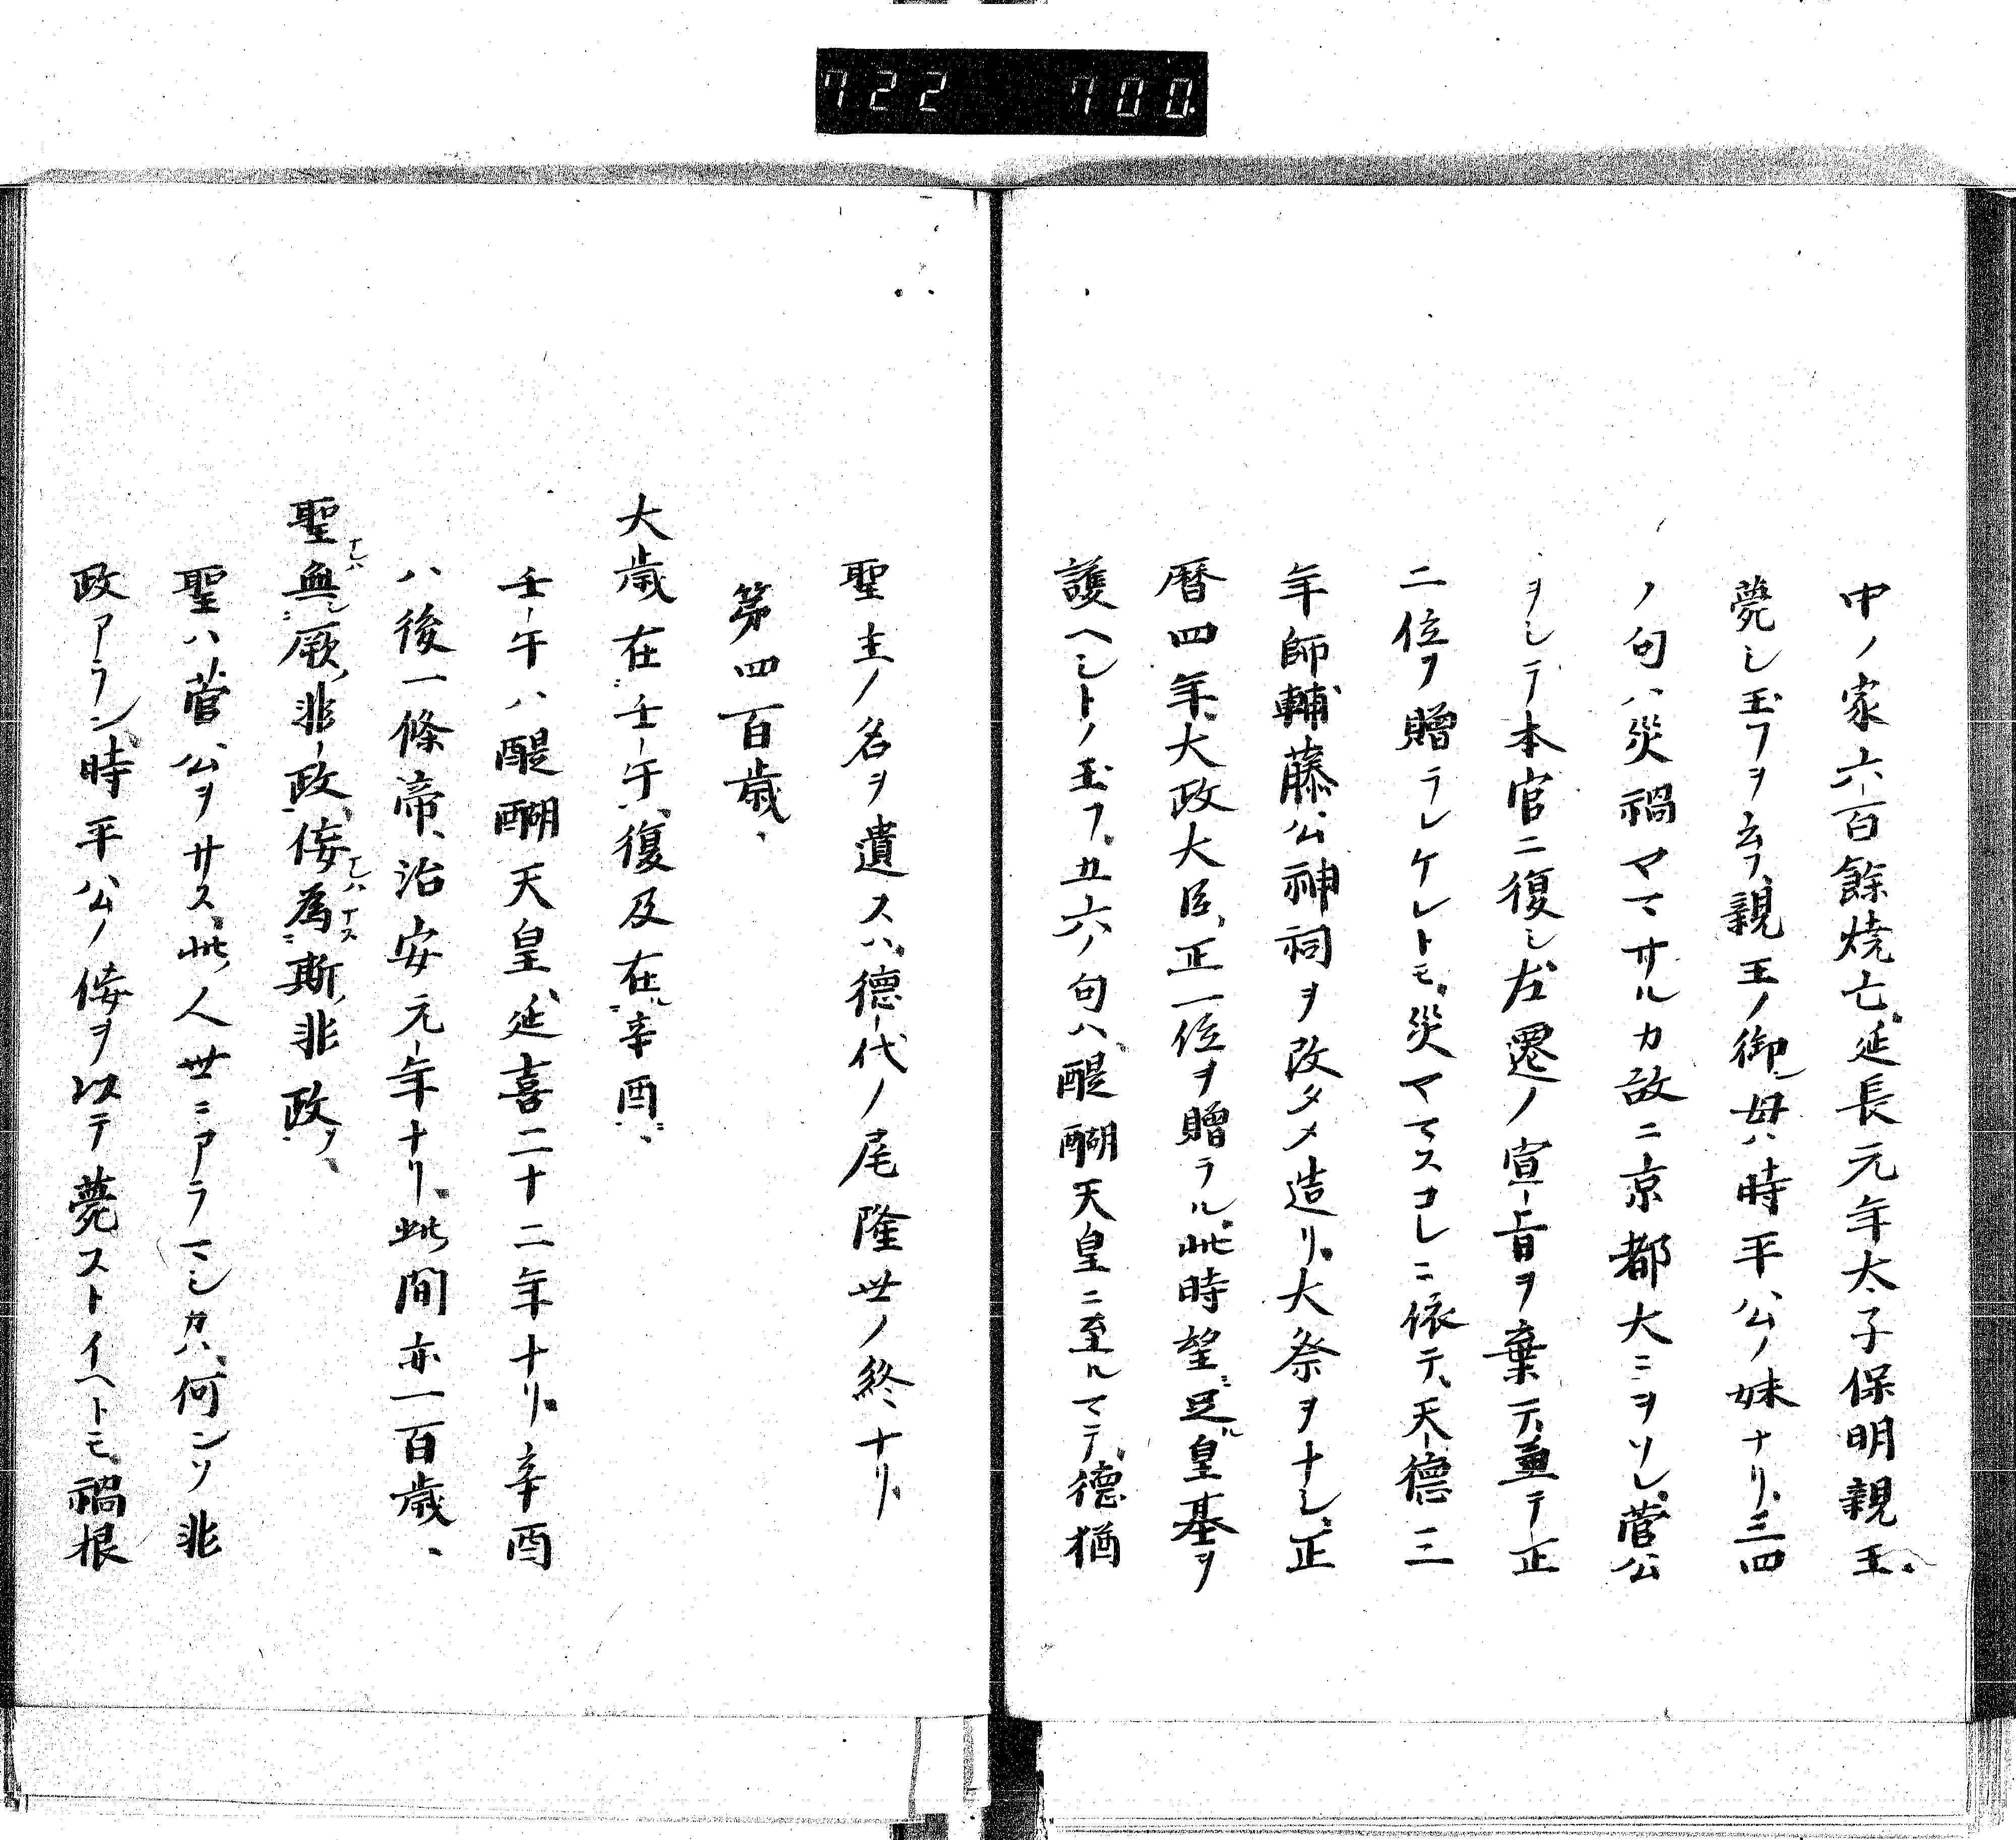 722 700.
中ノ家六百餘燒亡、延長元年太子保明親王、
薨シ玉フヲ云フ、親王ノ御母ハ時平公ノ妹ナリ、三四
ノ句ハ災禍ママサルカ故ニ京都大ニヲソレ、菅公
ヲシテ本官ニ復シ左遷ノ宣旨ヲ棄テ、並テ正
二位ヲ贈ラレケレトモ、災マスマスコレニ依テ、天德三
年師輔藤公神祠ヲ改タメ造リ、大祭ヲナシ、正
曆四年、大政大臣、正一位ヲ贈ラル、此時望足皇基ヲ
護ヘシトノ玉フ、五六ノ句ハ、醍醐天皇ニ至ルマテ、德猶
聖主ノ名ヲ遺スハ、德代ノ尾隆世ノ終ナリ、
第四百歲、
大歲在壬午、復及在辛酉、
壬午ハ醍醐天皇、延喜二十二年ナリ、辛酉
ハ後一條帝、治安元年ナリ、此間亦一百歲、
聖無厥非政、侫為斯非政、
聖ハ菅公ヲサス、此人世ニアラマシカハ、何ンソ非
政アラン、時平公ノ侫ヲ以テ薨ストイヘトモ、禍根